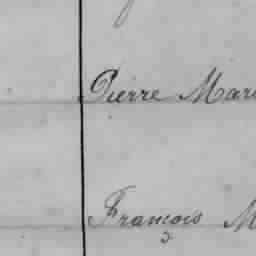 Pierre Mar
François M